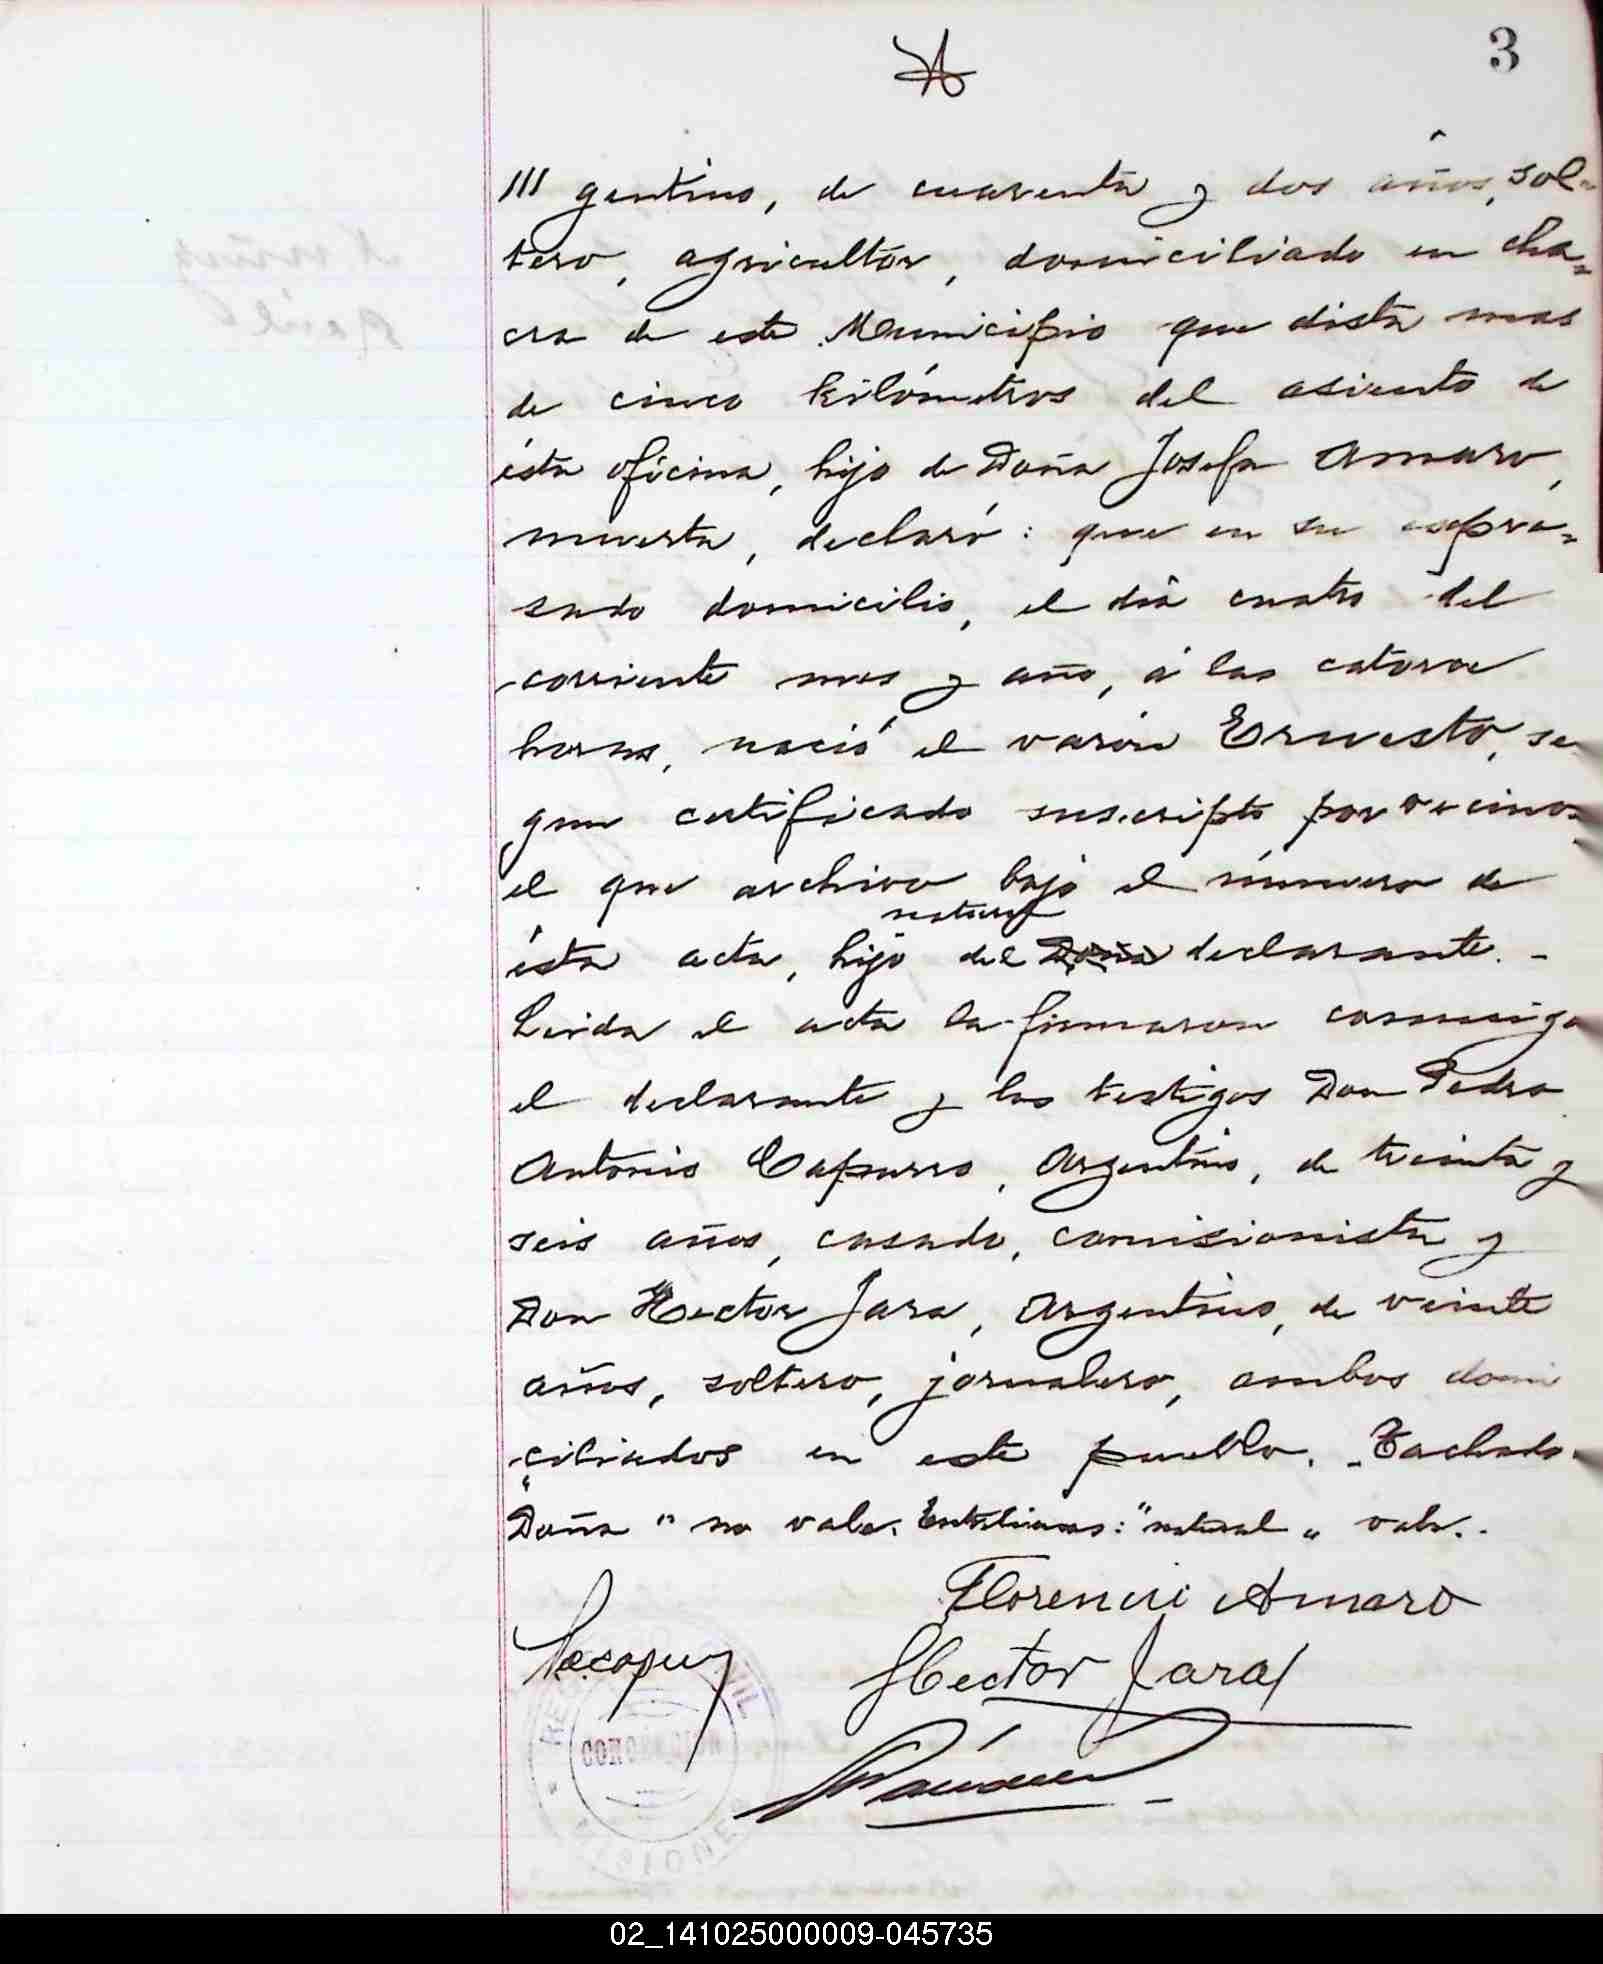 3
/// gentino, de cuarenta y dos años, sol-
tero, agricultor, domiciliado en cha-
cra de este Municipio que dista mas
de cinco kilómetros del asiento de
ésta oficina, hijo de Doña Josefa Amaro,
muerta, declaró: que en su espre-
sado domicilio, el día cuatro del
corriente mes y año, á las catorce
horas, nació el varón Ernesto, se
gun certificado suscripto por vecinos
el que archivo bajo el número de
natural
ésta acta, hijo del Doña declarante. -
Leida el acta la firmaron conmigo
el declarante y los testigos Don Pedro
Antonio Capurro, Argentino, de treinta y
seis años, casado, comisionista y
Don Hector Jara, Argentino, de veinte
años, soltero, jornalero, ambos domi
ciliados en este pueblo. - Tachado
"Doña" no vale. Entrelineas: "natural" vale. -
Florencio Amaro
Hector Jara
REGISTRO CIVIL
CONCEPCION
MISIONES
02_141025000009-045735